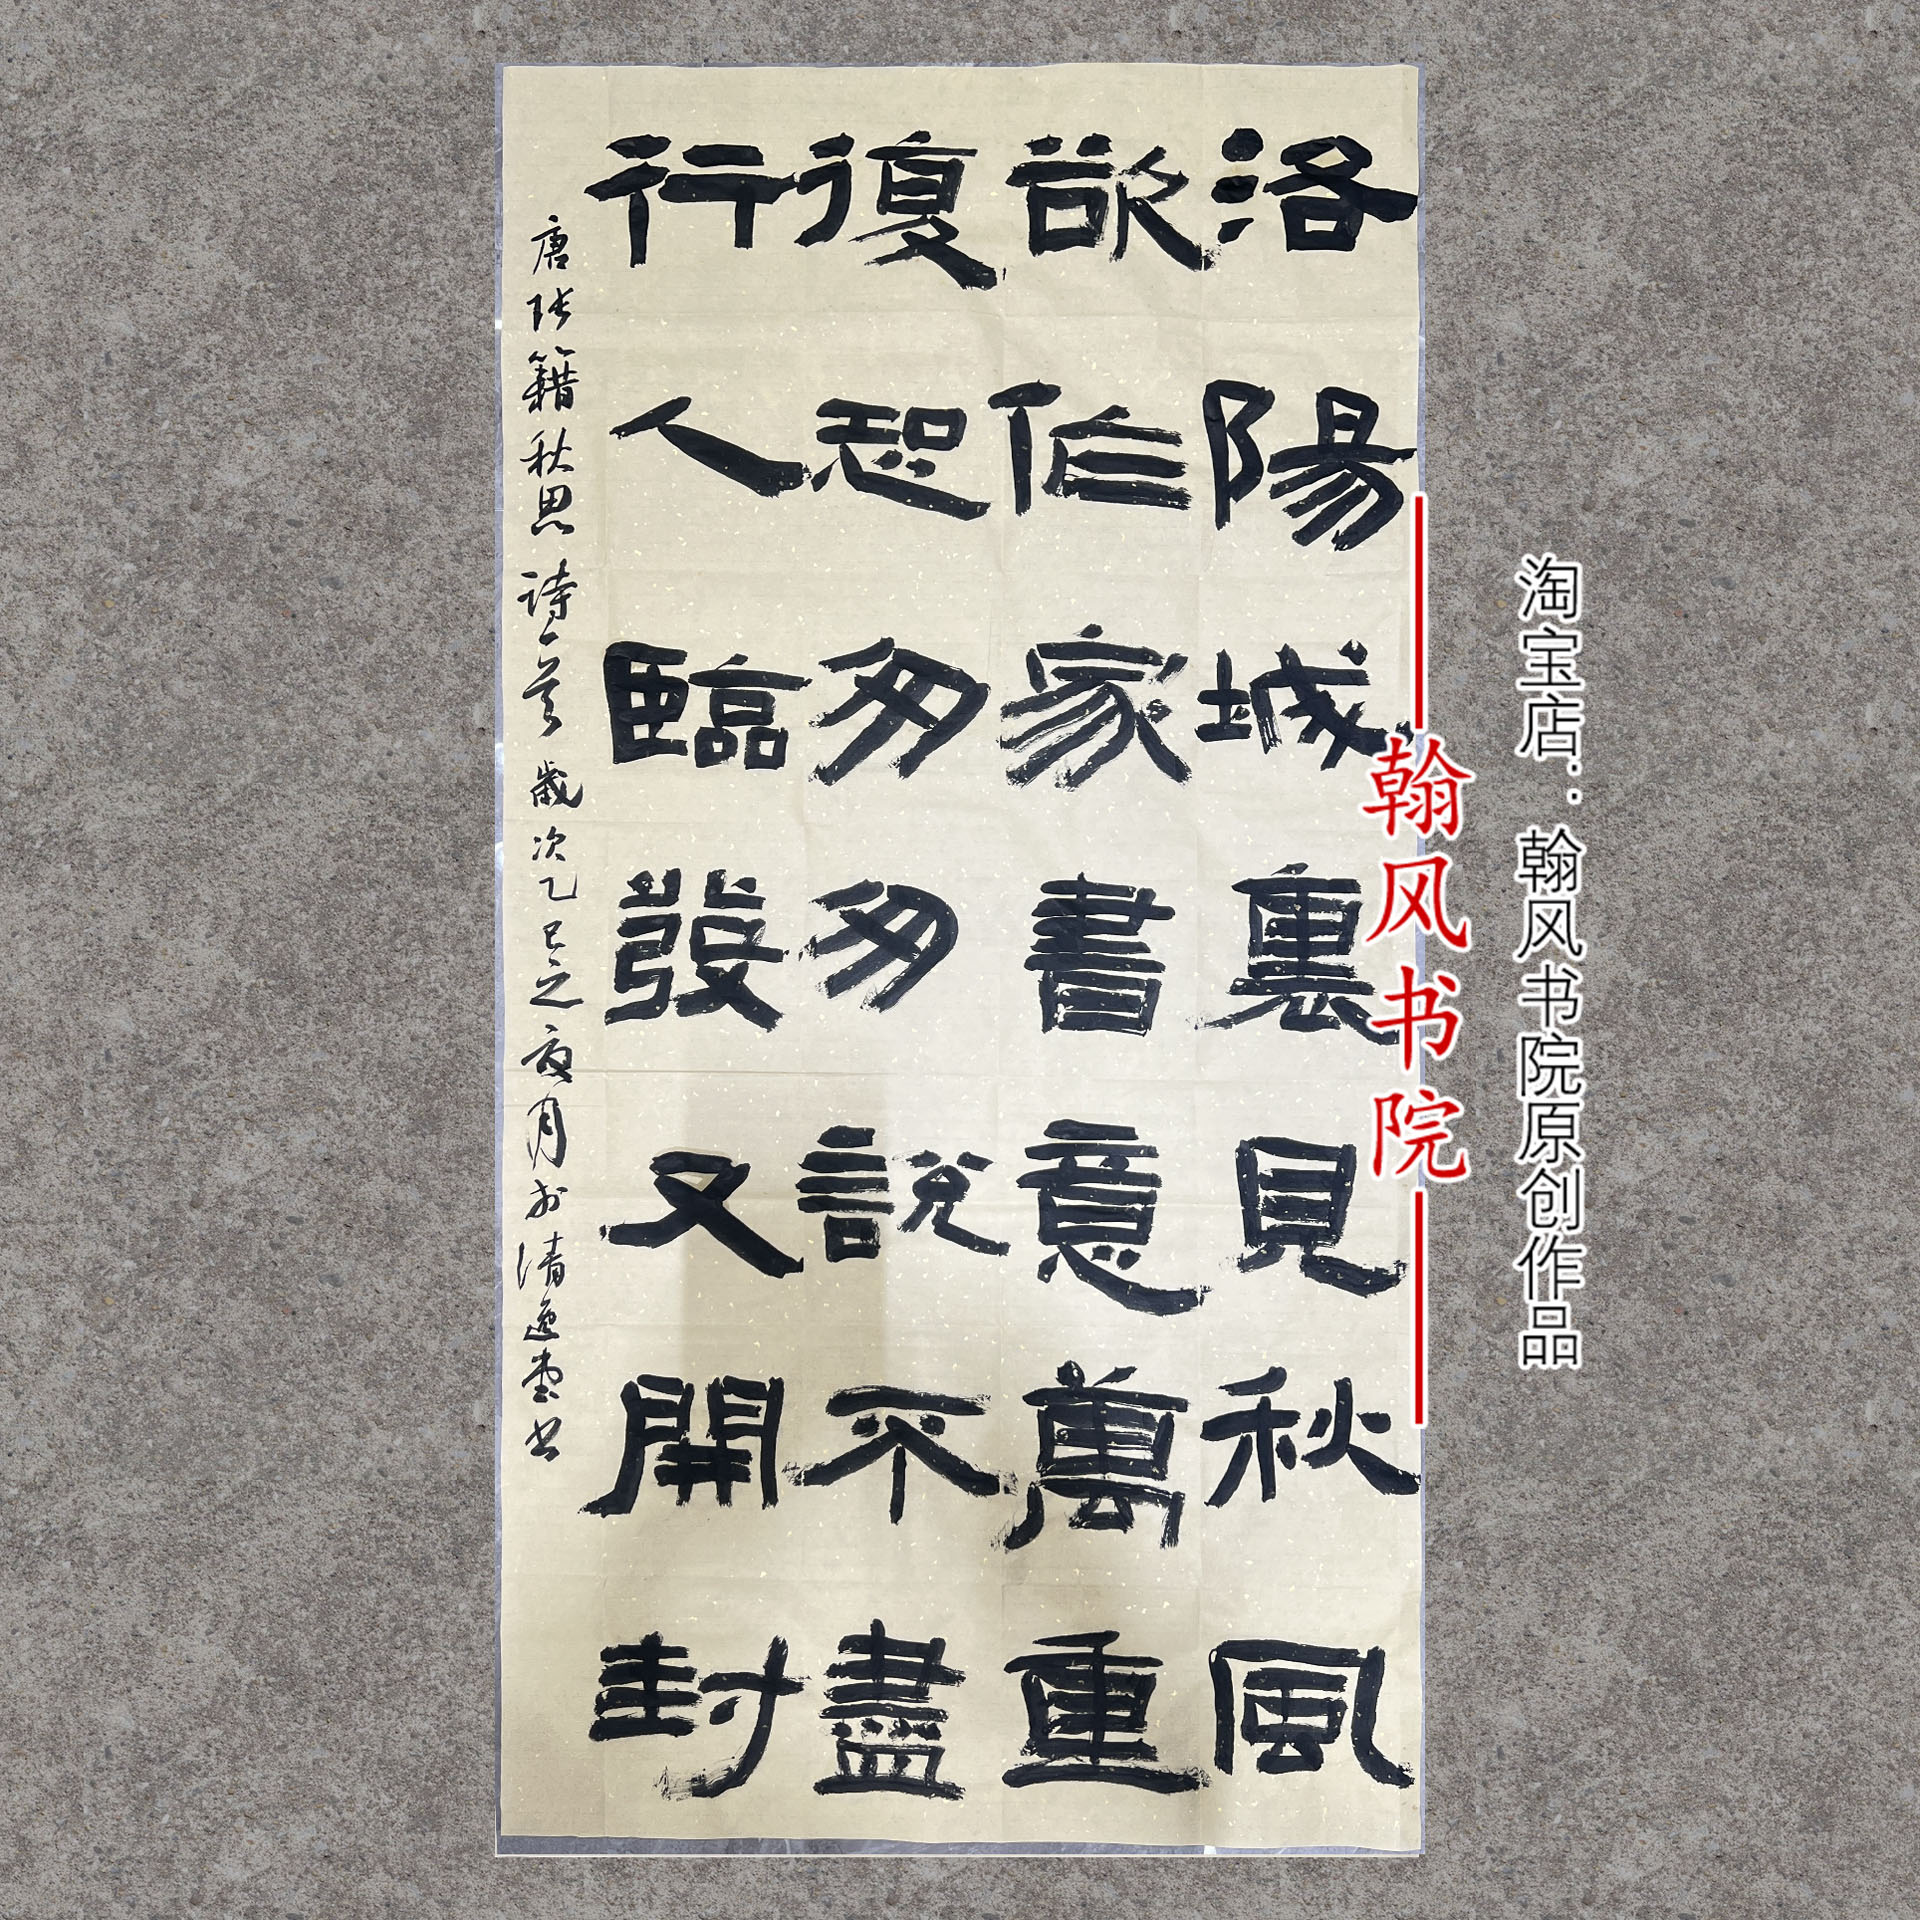 洛陽城裏見秋風
欲作家書意萬重
復恐匆匆說不盡
行人臨發又開封
唐张籍秋思诗一首 歲次乙巳之夏月于清逸堂书
翰风书院
淘宝店：翰风书院原创作品